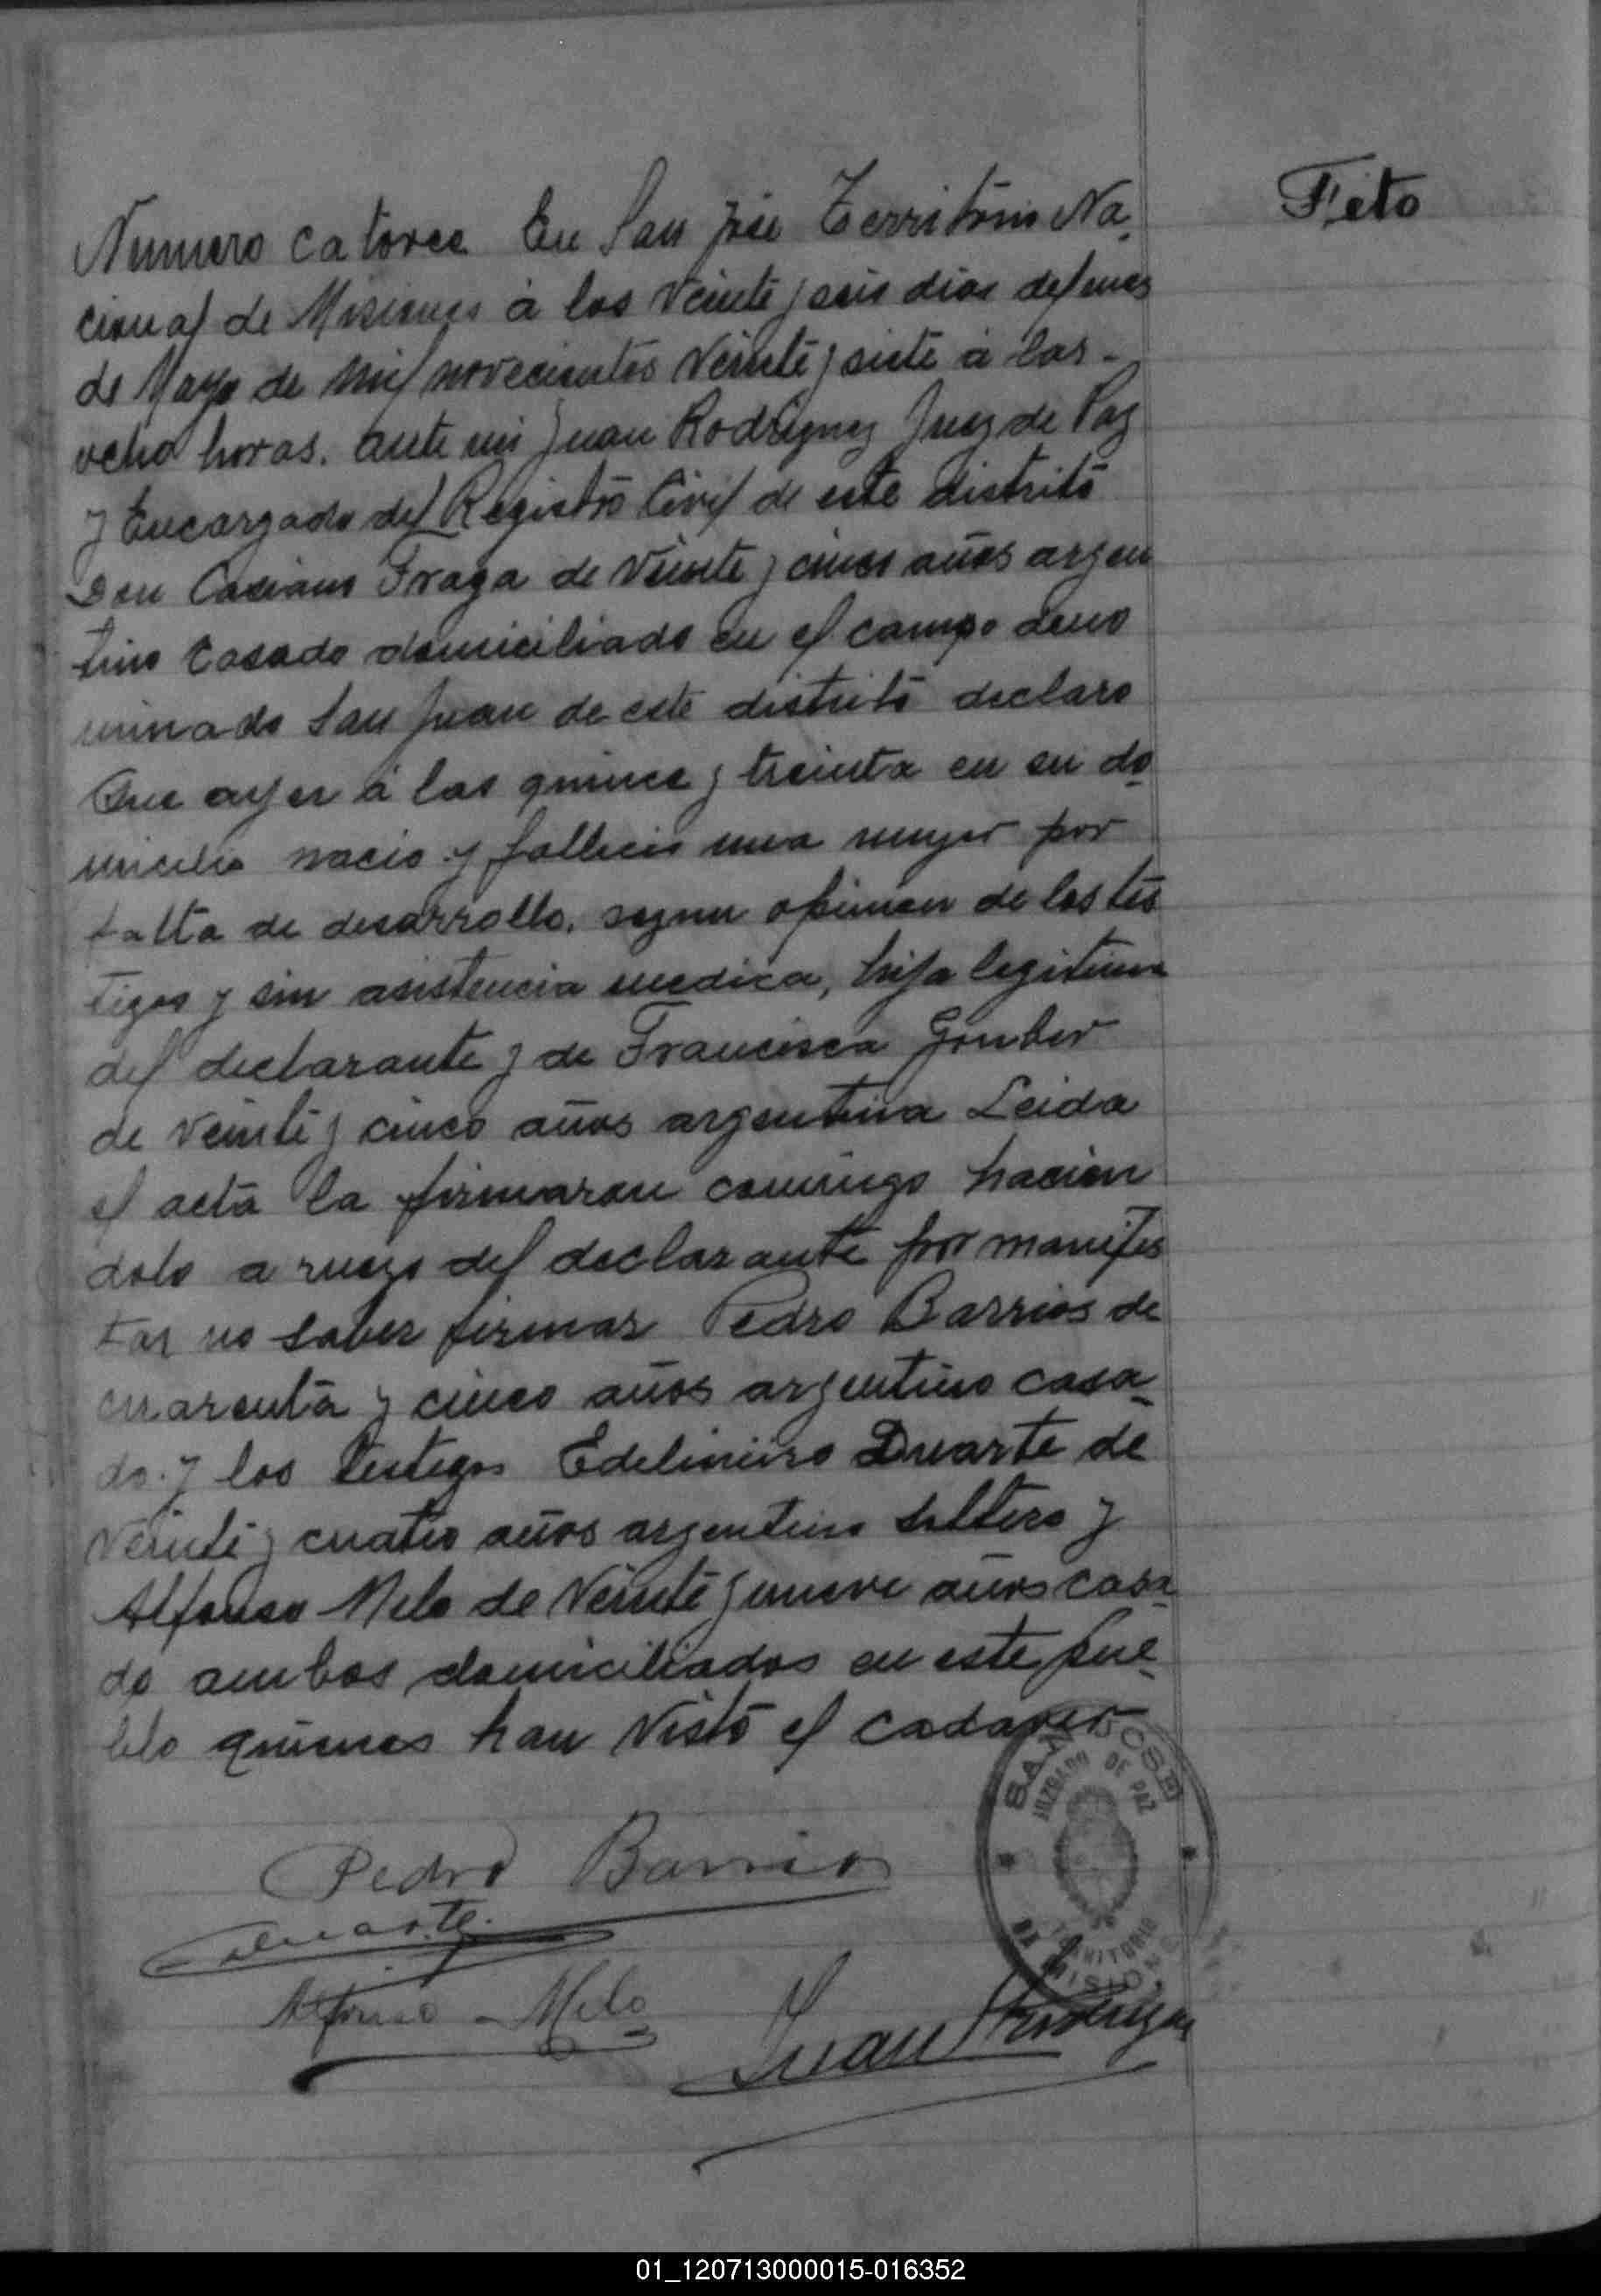 Feto
Numero catorce En San José Territorio Na-
cional de Misiones á los veinte y seis dias del mes
de Mayo de mil novecientos veinte y siete á las -
ocho horas. ante mi Juan Rodriguez Juez de Paz
y Encargado del Registro Civil de este distrito
Don Casiano Fraga de veinte y cinco años argen
tino casado domiciliado en el campo deno
minado San Juan de este distrito declaro
Que ayer á las quince y treinta en su do-
micilio nacio y fallecio una mujer por
falta de desarrollo, segun opinion de los tes
tigos y sin asistencia medica, hija legitima
del declarante y de Francisca
de veinte y cinco años argentina Leida
el acta la firmaron conmigo hacien
dolo a ruego del declarante por manifes
tar no saber firmar Pedro Barrios de
cuarenta y cinco años argentino casa-
do. y los testigos Edelmiro Duarte de
veinte y cuatro años argentino soltero y
Alfonso Melo de veinte y nueve años casa-
do ambos domiciliados en este pue-
blo quienes han visto el cadaver
SAN JOSE
JUZGADO DE PAZ
TERRITORIO
DE MISIONES
Pedro Barrios
EDuarte.
Alfonso Melo
Juan Rodriguez
01_120713000015-016352